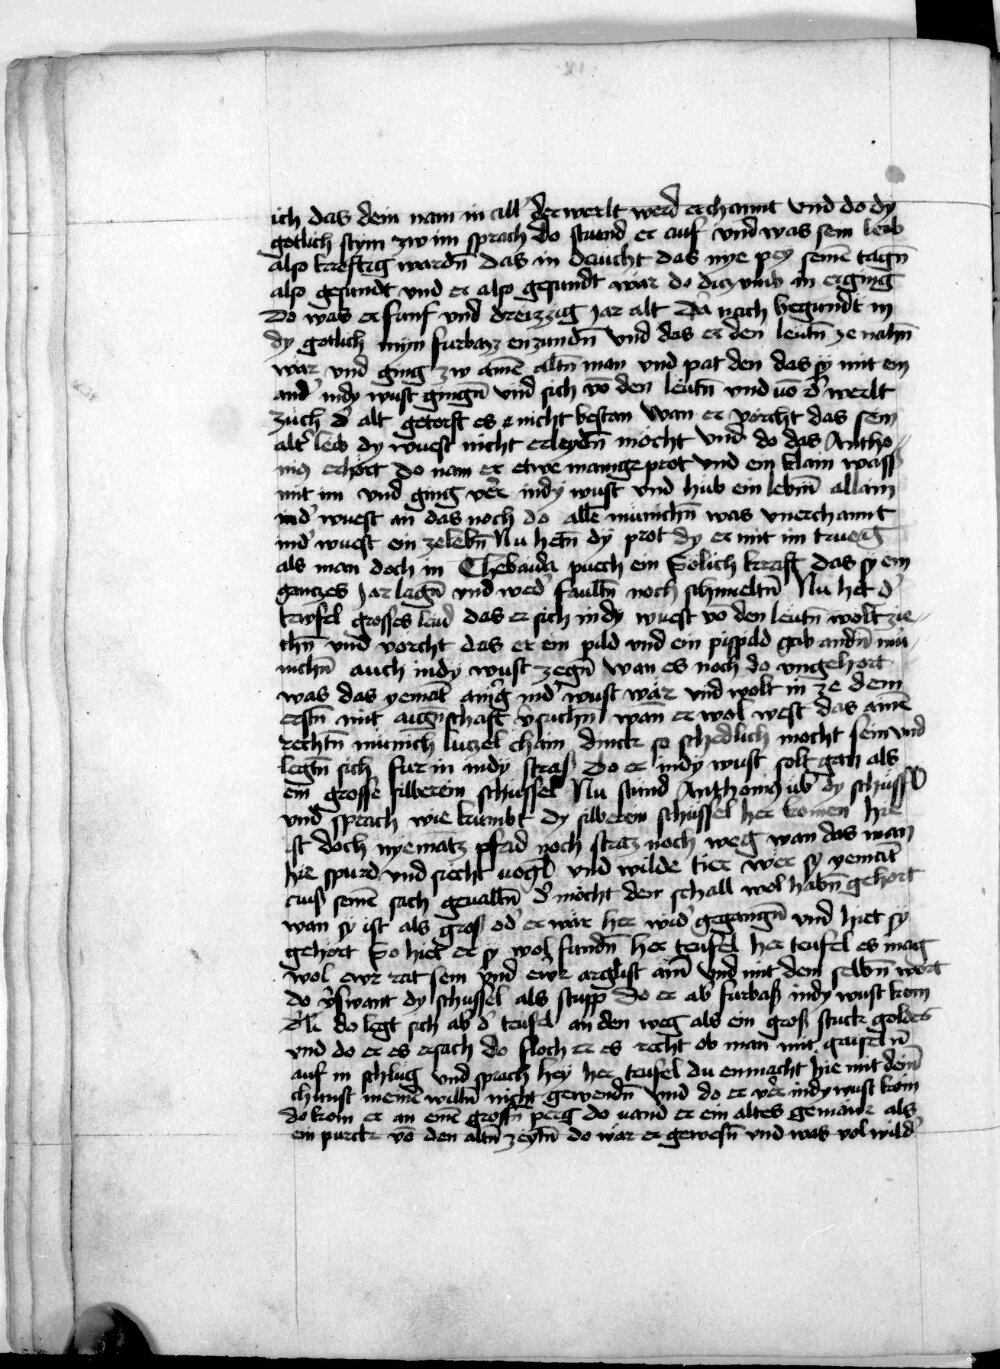 ich das dein nam in all der werlt werd erchannt vnd do dy
gotlich stym zw im sprach do stuend er auf vnd was sein leib
also kreftig wardn̄ das in deucht das nye pey seinē tagn̄
also gesundt vnd er also gesundt wär do diez vmb in erging
Do was er funf vnd dreizzig jar alt Da nach begundt in
dy gotlich mynn furbaz enzundn̄ vnd das er den leutn̄ ze nahn̄
wär vnd ging zw ainē altn̄ man vnd pat den das sy mit ein
and᷑ indy wust gingn̄ vnd sich vō den leutn̄ vnd vō d᷑ werlt
zuch d᷑ alt getorst es nicht bestan wan er vorcht das sein
alt᷑ leib dy wuest nicht erleydn̄ möcht vnd do das Antho
nig erhort do nam er etwe manigz prot vnd ein klain wass᷑
mit im vnd ging v᷑r indy wust vnd hub ein lebm̄ allain
ind᷑ wuest an das noch do alln̄ munichn̄ was vnerchannt
ind᷑ wuest ein zelebn̄ Nu hetn̄ dy prot dy er mit im trueg
als man doch in Thebaida puech ein solich kraft das sy ein
ganczes jar lagn̄ vnd wed᷑ faultn̄ noch schimeltn̄ Nu het d᷑
tewfel grosses laid das er sich indy wuest vō den leutn̄ wolt zie
chn̄ vnd vorcht das er ein pild vnd ein pispild gab andn̄ mu
nichn̄ auch indy wust zegn̄ wan es noch do vngehort
was das yemāt ainig ind᷑ wust wär vnd wolt in ze dem
erstn̄ mit augnschaft v᷑suchn̄ wan er wol west das ainē
rechtn̄ munich luczel chain dinckh so schedlich mocht sein vnd
legtn̄ sich fur in indy stras do er indy wust solt gan als
ein grosse silberein schussel Nu stund Anthonig ub᷑ dy schussl
vnd sprach wie kumbt dy silberein schussel her komen hie
ist doch nyemātz pfad noch straz noch weg wan das man
hie spurd vnd siecht uogl vnd wilde tier wer sy yemāt
aus seinē sach geualln̄ d᷑ möcht den schall wol habn̄ gehort
wan sy ist als gros od᷑ er wär her wid᷑ gegangn̄ vnd hiet sy
gehort So hiet er sy wol fundn̄ her teufel her teufel es mag
wol ewr rat sein vnd ewr arglist ain̄ vnd mit dem selbn̄ wort
do v᷑swant dy schussel als stupp do er ab᷑ furbaß indy wust kom
do legt sich ab᷑ d᷑ teufel an den weg als ein groß stuck goldes
vnd do er es ersach do floch er es recht ob man mit
auf in schlug vnd sprach hey her teufel du enmacht hie mit dein̄
chunst meinē willn̄ nicht gewendn̄ vnd do er v᷑r indy wust kom
do kom er an einē grossn̄ perg do uand er ein altes gemäur als
ein purckh vō den altn̄ zeytn̄ do wär er gewesn̄ vnd was vol wild᷑